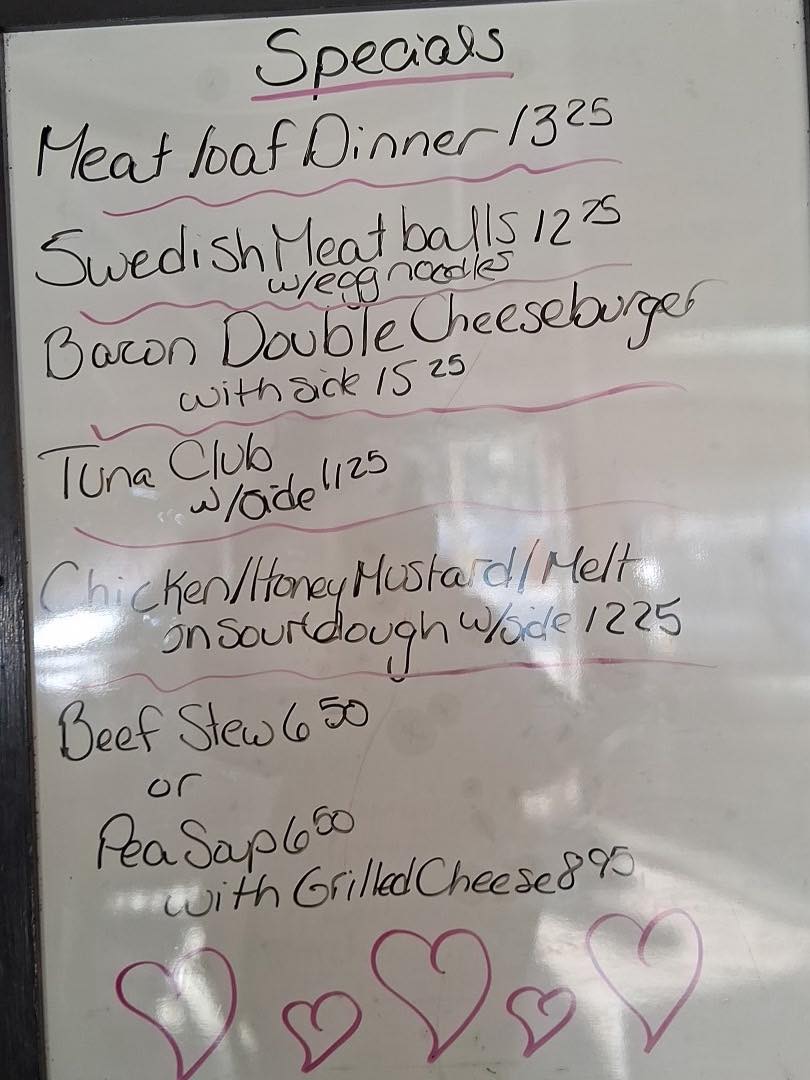 Specials
Meat loaf Dinner 13 25
Swedish Meat balls 12 75
w/egg noodles
Bacon Double Cheeseburger
with side 15 25
Tuna Club
w/side 11 25
Chicken/Honey Mustard/Melt
on Sourdough w/side 12 25
Beef Stew 6 50
or
Pea Soup 6 50
with Grilled Cheese 8 95